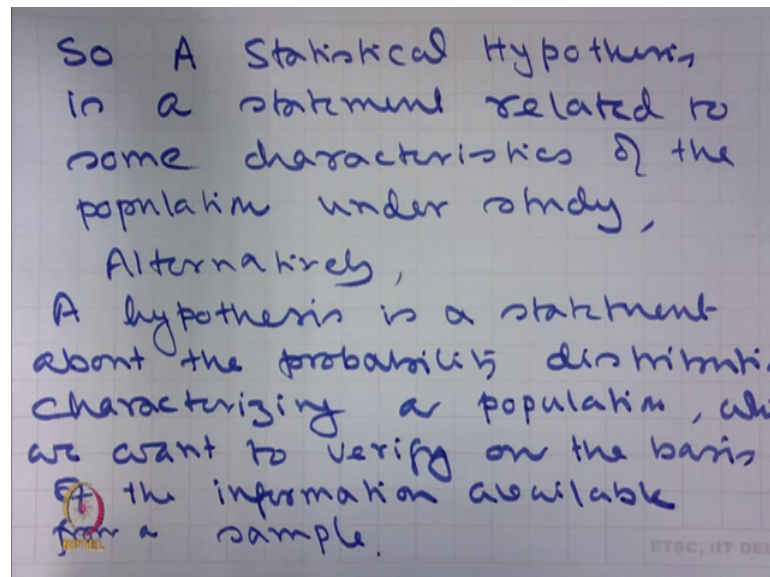 So A Statistical Hypothesis
is a statement related to
some characteristics of the
population under study,
Alternatively,
A hypothesis is a statement
about the probability distributi
characterizing a population, whi
we want to verify on the basis
of the information available
from a sample.
NPTEL
ETSC, IIT DEL